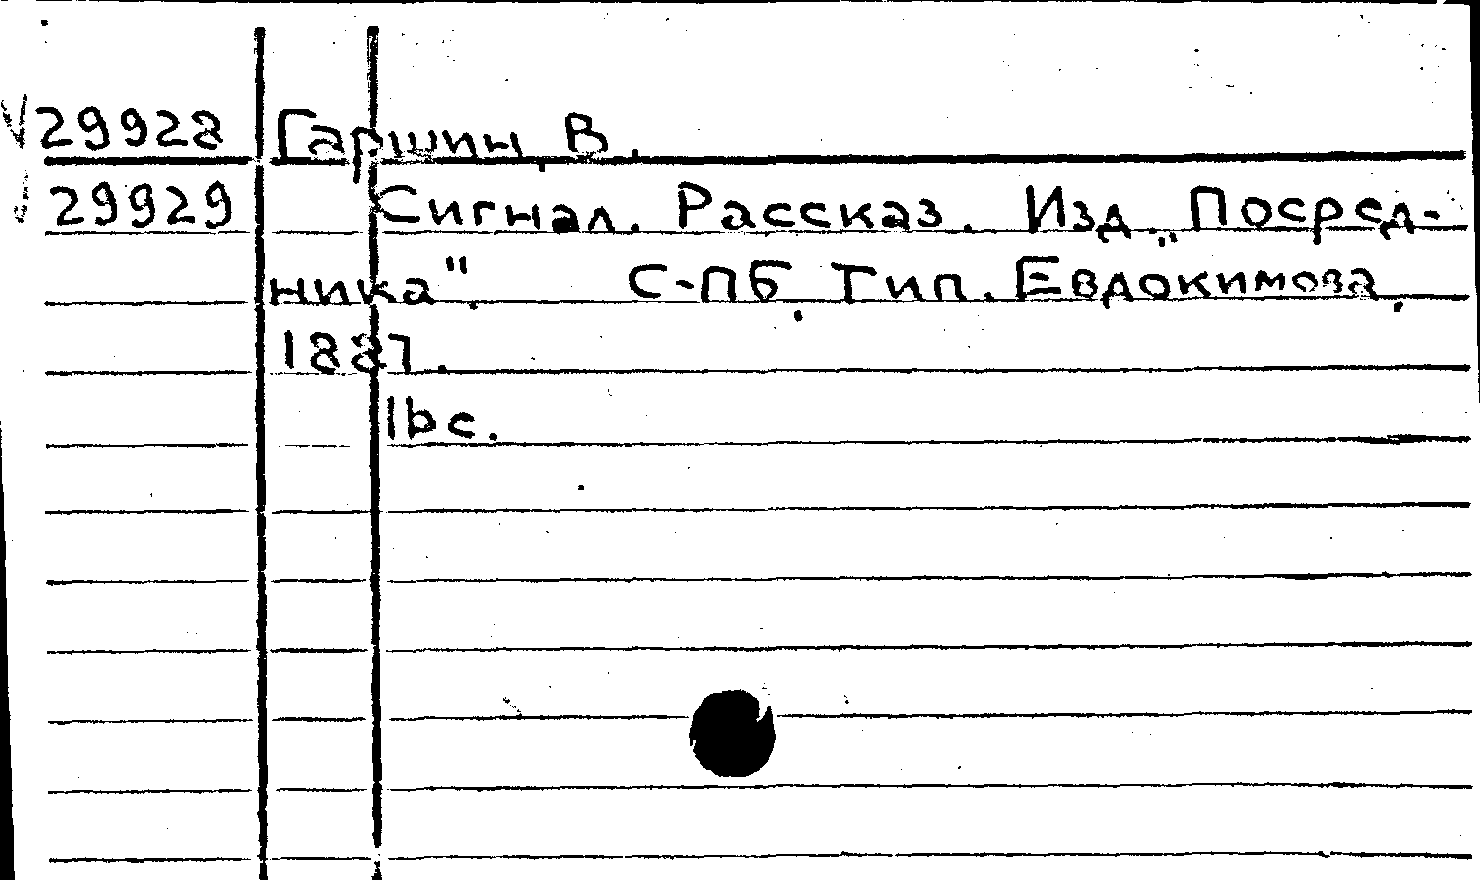 29928 Гаршин, В.
29929 Сигнал. Рассказ. Изд. „Посред-
ника". С-ПБ, Тип. Евдокимова,
1887.
16 с.